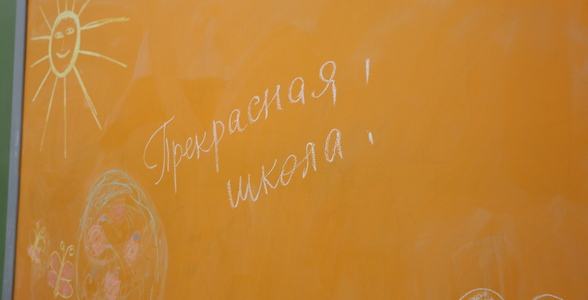 Прекрасная
школа!